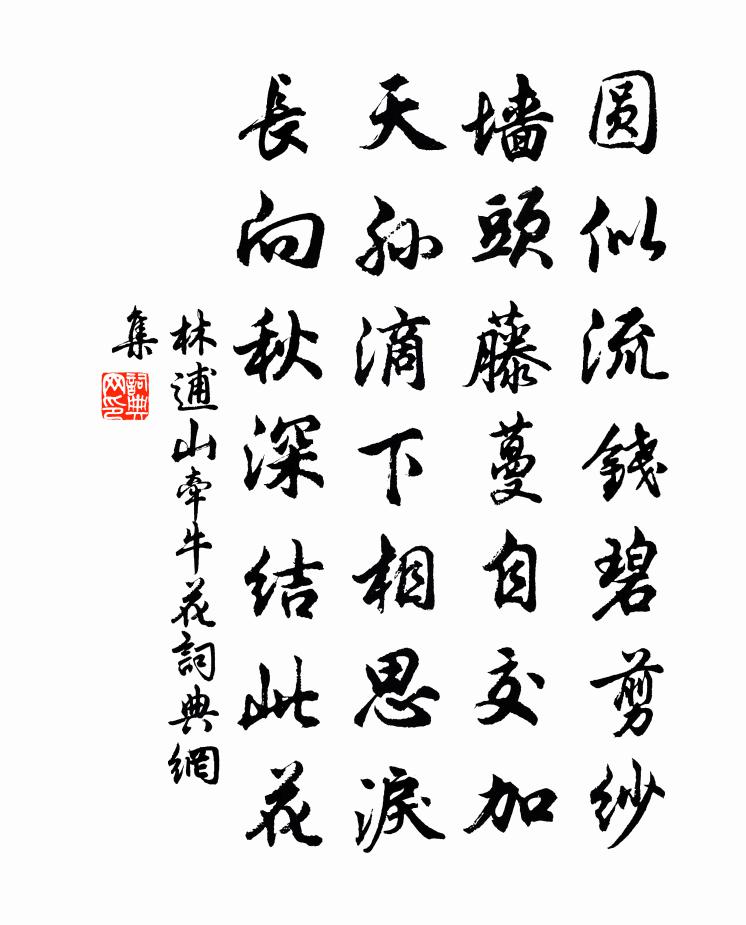 圆似流錢碧剪紗
墙頭藤蔓自交加
天孫滴下相思淚
長向秋深结此花
林逋山牽牛花詞典網
集
詞典
网印